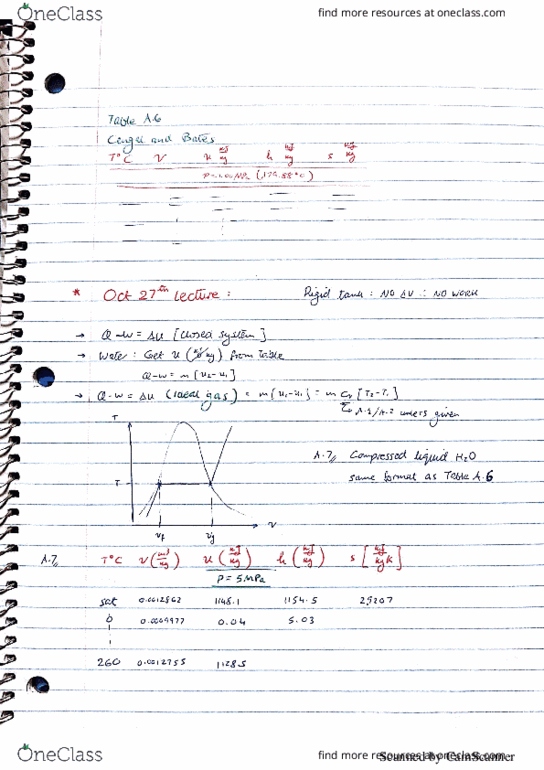 OneClass find more resources at oneclass.com
Table A.6
Cengel and
T°C V u kJ/kg h kJ/kg s kJ/kg
* Oct 27th Lecture : Rigid tank : NO ΔV ∴ NO WORK
→ Q-W = ΔU [closed system]
→ Water : Get u (kJ/kg) from Table
Q-W = m[u2-u1]
→ Q-W = ΔU (ideal gas) = m[u2-u1] = m Cv [T2-T1]
↳ A.1/A.2 unless given
T
A.7, Compressed liquid H2O
same format as Table A.6
T
vf vg v
A.7, T°C V(m³/kg) u(kJ/kg) h(kJ/kg) s[kJ/kg K]
P = 5MPa
sat 0.0012862 1148.1 1154.5 2.9207
0 0.0009977 0.04 5.03
260 0.0012755 1128.5
OneClass find more resources at oneclass.com
Scanned by CamScanner